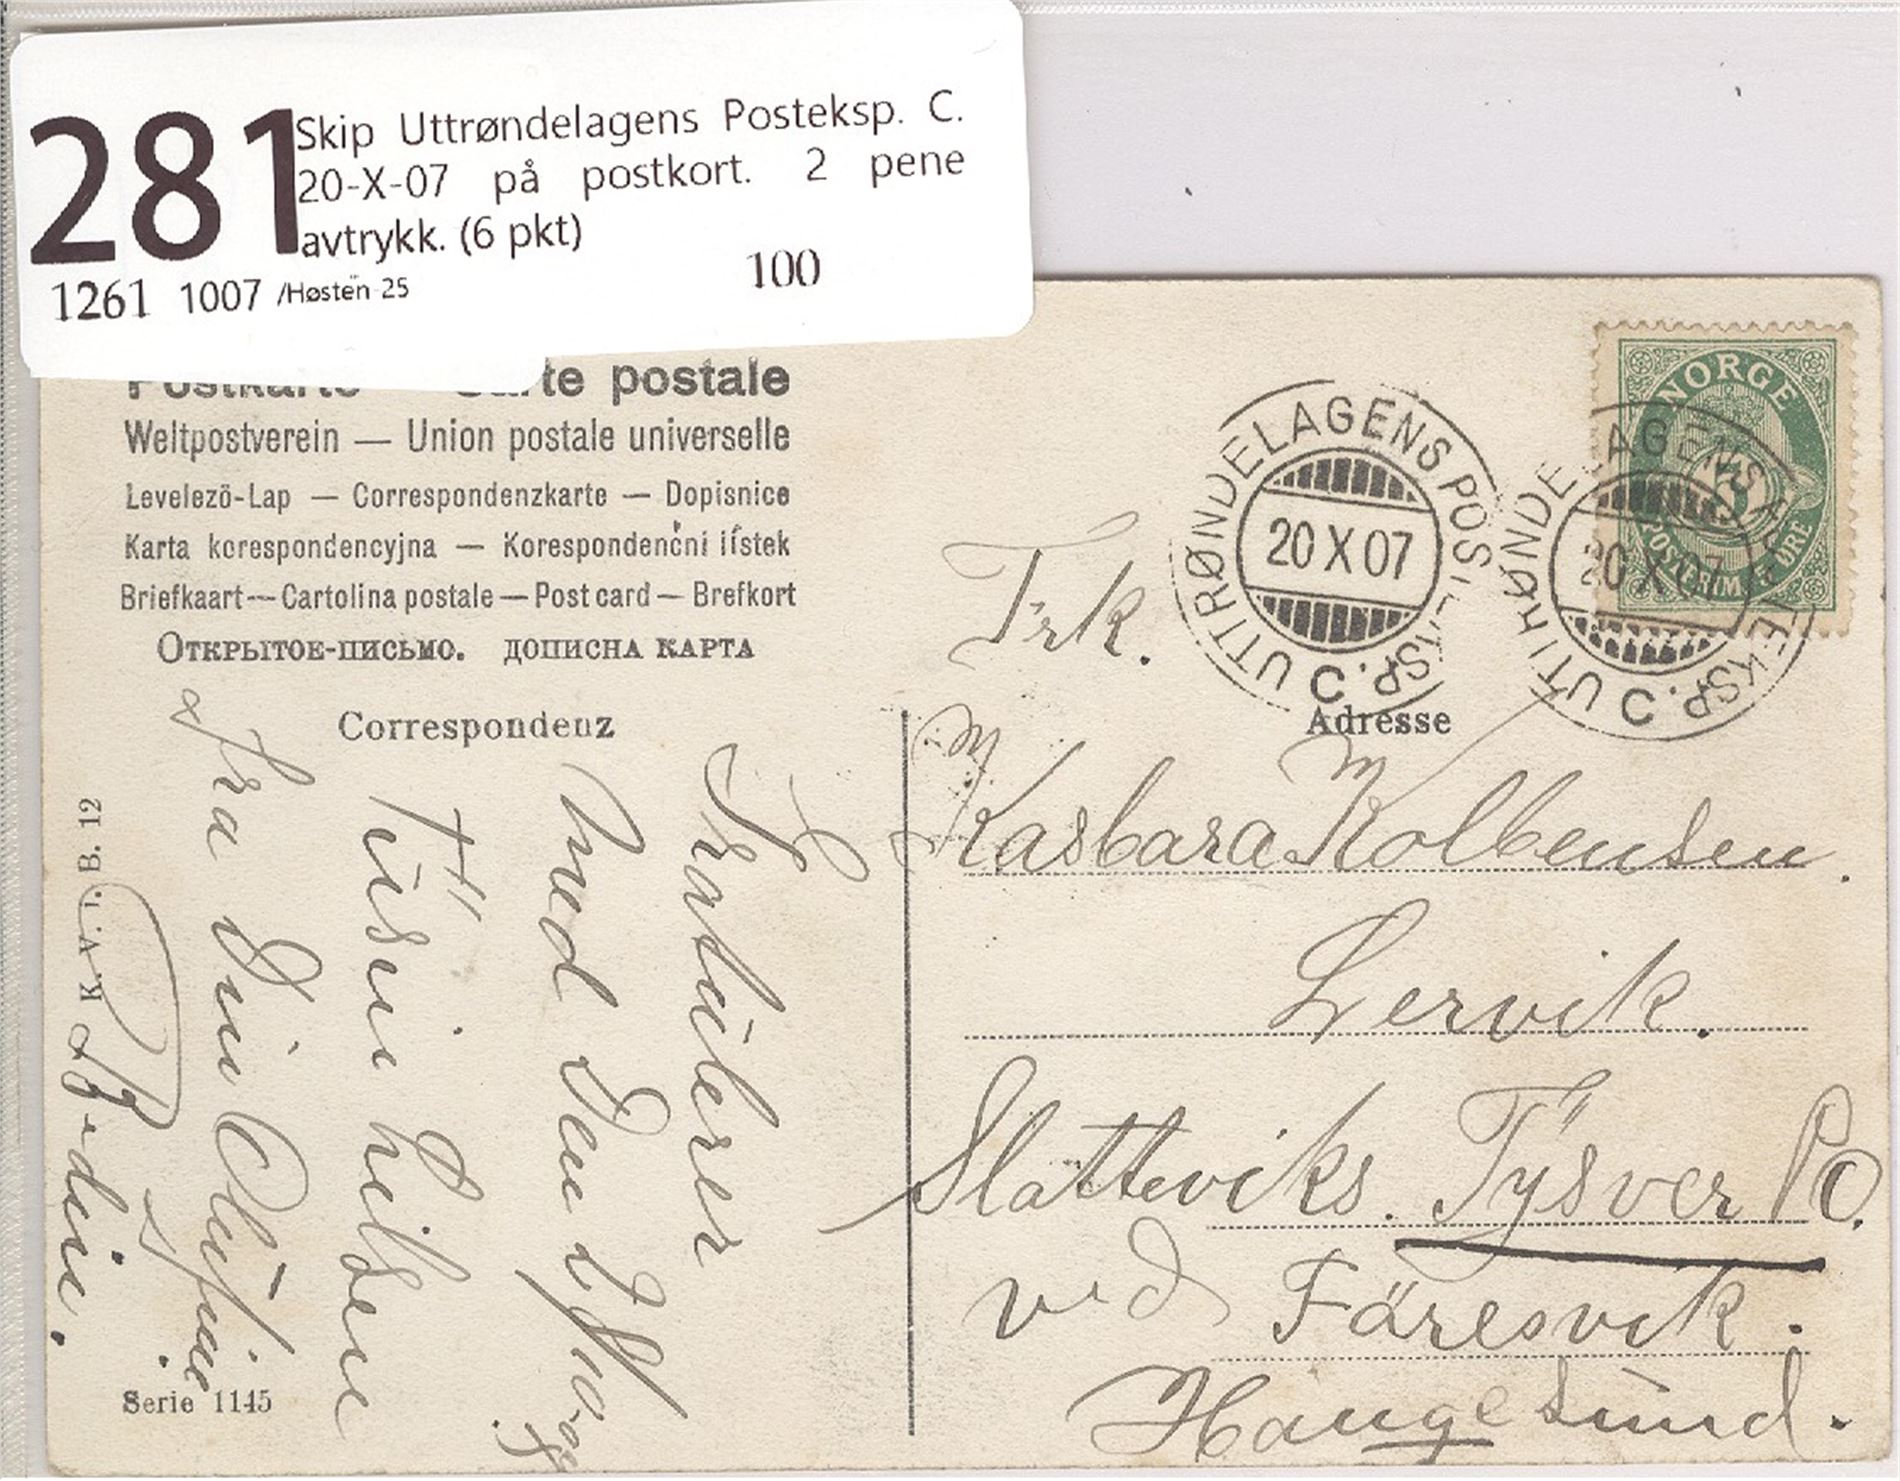 281
Skip Uttrøndelagens Posteksp. C.
20-X-07 på postkort. 2 pene
avtrykk. (6 pkt)
1261 1007 /Høsten 25
100
Postkarte Carte postale
Weltpostverein — Union postale universelle
Levelezö-Lap — Correspondenzkarte — Dopisnice
Karta korespondencyjna — Korespondenční lístek
Briefkaart — Cartolina postale — Post card — Brefkort
Открытое-письмо. дописна карта
Correspondenz
Adresse
NORGE
5
POSTFRIM ØRE
UTTRØNDELAGENS POSTEKSP. C
20 X 07
UTTRØNDELAGENS POSTEKSP. C
20 X 07
Frk.
Kasbara Kolbensen.
Lervik.
Slatteviks. Tysver PO.
ved Færesvik.
Haugesund.
Gratulerer
med den
hilsen
fra din
K. V. i. B. 12
Serie 1145